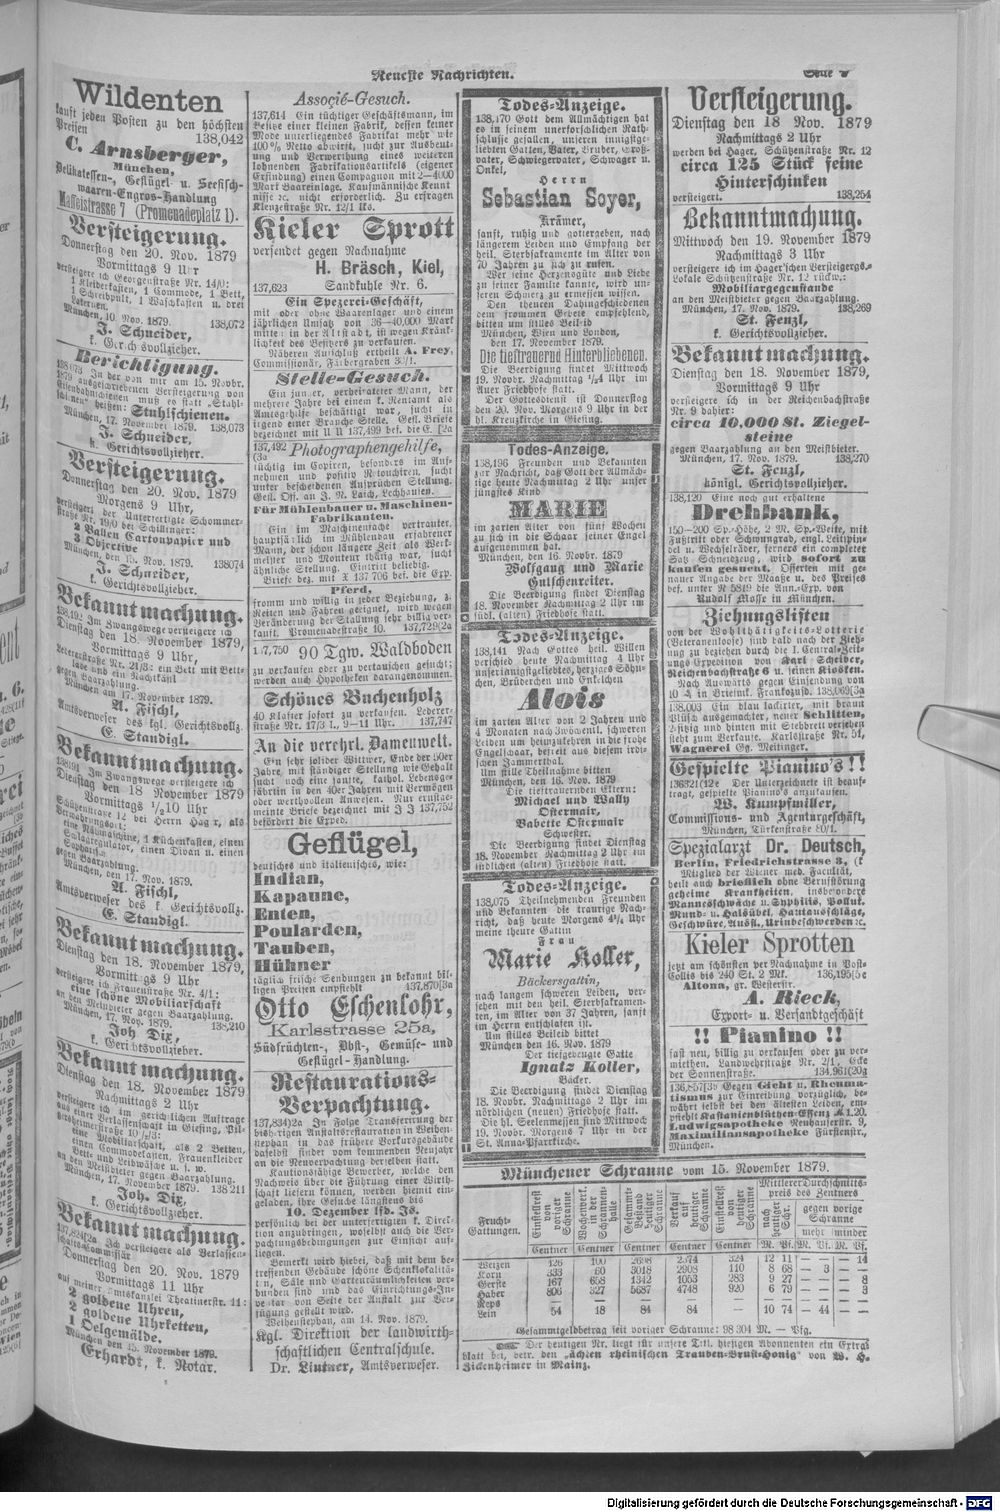 Neueste Nachrichten.
Seite 7
Wildenten
kauft jeden Posten zu den höchsten
Preisen 138,042
C. Arnsberger,
München,
Delikatessen-, Geflügel- u. Seefisch-
waaren-Engros-Handlung
Maffeistrasse 7 (Promenadeplatz 1).
Versteigerung.
Donnerstag den 20. Nov. 1879
Vormittags 9 Uhr
versteigere ich Georgenstraße Nr. 14/0:
1 Kleiderkasten, 1 Commode, 1 Bett,
1 Schreibpult, 1 Waschkasten u. drei
Laternen.
München, 10. Nov. 1879. 138,072
J. Schneider,
k. Gerichtsvollzieher.
Berichtigung.
138,073 In der von mir am 15. Novbr.
1879 ausgeschriebenen Versteigerung von
Eisenbahnschienen muß es statt „Stahl-
schienen“ heißen: Stuhlschienen.
München, 17. November 1879. 138,073
J. Schneider,
k. Gerichtsvollzieher.
Versteigerung.
Donnerstag den 20. Nov. 1879
Morgens 9 Uhr,
versteigert der Unterfertigte Schommer-
straße Nr. 19/0 bei Schillinger:
2 Ballen Cartonpapier und
3 Objective
München, den 15. Nov. 1879. 138074
J. Schneider,
k. Gerichtsvollzieher.
Bekanntmachung.
138,192 Im Zwangswege versteigere ich
Dienstag den 18. November 1879,
Vormittags 9 Uhr,
Ledererstraße Nr. 21/3: ein Bett mit Bett-
lade und ein Nachtkastl
gegen Baarzahlung.
München am 17. November 1879.
A. Fischl,
Amtsverweser des kgl. Gerichtsvollz.
E. Standigl.
Bekanntmachung.
138,191 Im Zwangswege versteigere ich
Dienstag den 18 November 1879,
Vormittags 1/2 10 Uhr
Schützenstraße 12 bei Herrn Hager, als
Verwahrungsort:
eine Nähmaschine, 1 Küchenkasten, einen
Schlagregulator, einen Divan u. einen
Sophatisch
gegen Baarzahlung.
München, den 17. Nov. 1879.
A. Fischl,
Amtsverweser des k. Gerichtsvollz.
E. Standigl.
Bekanntmachung.
Dienstag den 18. November 1879,
Vormittags 9 Uhr
versteigere ich Frauenstraße Nr. 4/1:
eine schöne Mobiliarschaft
an den Meistbieter gegen Baarzahlung.
München, 17. Nov. 1879. 138,210
Joh Dix,
k. Gerichtsvollzieher.
Bekanntmachung.
Dienstag den 18. November 1879
Nachmittags 2 Uhr
versteigere ich im gerichtlichen Auftrage
aus einer Verlassenschaft in Giesing, Pil-
gersheimerstraße Nr. 10 1/2/3:
eine Mobiliarschaft, als 2 Betten,
einen Commodekasten, Frauenkleider
Bette und Leibwäsche u. s. w.
an den Meistbieter gegen Baarzahlung.
München, 17. November 1879. 138 211
Joh. Dix,
k. Gerichtsvollzieher.
Bekanntmachung.
137,824(2a Ich versteigere als Verlassen-
schafts-Commissär
Donnerstag den 20. Nov. 1879
Vormittags 11 Uhr
auf meiner Amtskanzlei Theatinerstr. 11:
2 goldene Uhren,
2 goldene Uhrketten,
1 Oelgemälde.
München den 15. November 1879.
Erhardt, k. Notar.
Associé-Gesuch.
137,614 Ein tüchtiger Geschäftsmann, im
Besitze einer kleinen Fabrik, dessen keiner
Mode unterliegendes Fabrikat mehr wie
100% Netto abwirft, sucht zur Ausbeut-
ung und Verwerthung eines weiteren
lohnenden Fabrikationsartikels (eigener
Erfindung) einen Compagnon mit 2—4000
Mark Baareinlage. Kaufmännische Kennt
nisse ꝛc. nicht erforderlich. Zu erfragen
Klenzestraße Nr. 12/1 lks.
Kieler Sprott
versendet gegen Nachnahme
H. Bräsch, Kiel,
137,623 Sandkuhle Nr. 6.
Ein Spezerei-Geschäft,
mit oder ohne Waarenlager und einem
jährlichen Umsatz von 36—40,000 Mark
mitte in der Altstadt, ist wegen Kränk-
lichkeit des Besitzers zu verkaufen.
Näheren Aufschluß ertheilt A. Frey,
Commissionär, Färbergraben 3/1.
Stelle-Gesuch.
Ein junger, verheiratheter Mann, der
mehrere Jahre bei einem k. Rentamt als
Amtsgehilfe beschäftigt war, sucht in
irgend einer Branche Stelle. Gefl. Briefe
bezeichnet mit U U 137,499 bef. die E. [2a
137,492 Photographengehilfe,
(3a
tüchtig im Copiren, besonders im Auf-
nehmen und positiv Retouchiren, sucht
unter bescheidenen Ansprüchen Stellung.
Gefl. Off. an J. N. Laich, Lechhausen.
Für Mühlenbauer u. Maschinen-
Fabrikanten.
Ein im Maschinenfache vertrauter,
hauptsächlich im Mühlenbau erfahrener
Mann, der schon längere Zeit als Werk-
meister und Monteur thätig war, sucht
ähnliche Stellung. Eintritt beliebig.
Briefe bez. mit X 137 706 bef. die Exp.
Pferd,
fromm und willig in jeder Beziehung, z.
Reiten und Fahren geeignet, wird wegen
Veränderung der Stallung sehr billig ver-
kauft. Promenadestraße 10. 137,729(2a
137,750 90 Tgw. Waldboden
zu verkaufen oder zu vertauschen gesucht;
werden auch Hypotheken darangenommen.
Schönes Buchenholz
40 Klafter sofort zu verkaufen. Lederer-
straße Nr. 17/3 l., 9—11 Uhr. 137,747
An die verehrl. Damenwelt.
Ein sehr solider Wittwer, Ende der 50er
Jahre, mit ständiger Stellung wie Gehalt
sucht noch eine solide, kathol. Lebensge-
fährtin in den 40er Jahren mit Vermögen
oder werthvollem Anwesen. Nur ernstge-
meinte Briefe bezeichnet mit J J 137,752
befördert die Exped.
Geflügel,
deutsches und italienisches, wie:
Indian,
Kapaune,
Enten,
Poularden,
Tauben,
Hühner
täglich frische Sendungen zu bekannt bil-
ligen Preisen empfiehlt 137,870[3a
Otto Eschenlohr,
Karlsstrasse 25a,
Südfrüchten-, Obst-, Gemüse- und
Geflügel-Handlung.
Restaurations-
Verpachtung.
137,834)2a In Folge Transferirung der
bisherigen Anstaltsrestauration in Weihen-
stephan in das frühere Vorkursgebäude
daselbst findet vom kommenden Neujahr
an die Neuverpachtung derselben statt.
Kautionsfähige Bewerber, welche den
Nachweis über die Führung einer Wirth-
schaft liefern können, werden hiemit ein-
geladen, ihre Gesuche längstens bis
10. Dezember lfd. Js.
persönlich bei der unterfertigten k. Direk-
tion anzubringen, woselbst auch die Ver-
pachtungsbedingungen zur Einsicht auf-
liegen.
Bemerkt wird hiebei, daß mit dem be-
treffenden Gebäude schöne Schenklokalitä-
ten, Säle und Gartenräumlichkeiten ver-
bunden sind und das Einrichtungs-In-
ventar von Seite der Anstalt zur Ver-
fügung gestellt wird.
Weihenstephan, am 14. Nov. 1879.
Kgl. Direktion der landwirth-
schaftlichen Centralschule.
Dr. Lintner, Amtsverweser.
Todes-Anzeige.
138,170 Gott dem Allmächtigen hat
es in seinem unerforschlichen Rath-
schlusse gefallen, unseren innigstge-
liebten Gatten, Vater, Bruder, Groß-
vater, Schwiegervater, Schwager u.
Onkel,
Herrn
Sebastian Soyer,
Krämer,
sanft, ruhig und gottergeben, nach
längerem Leiden und Empfang der
heil. Sterbsakramente im Alter von
70 Jahren zu sich zu rufen.
Wer seine Herzensgüte und Liebe
zu seiner Familie kannte, wird un-
seren Schmerz zu ermessen wissen.
Den theuren Dahingeschiedenen
dem frommen Gebete empfehlend,
bitten um stilles Beileid
München, Wien und London,
den 17. November 1879.
Die tieftrauernd Hinterbliebenen.
Die Beerdigung findet Mittwoch
19. Novbr. Nachmittag 1/4 Uhr im
Auer Friedhofe statt.
Der Gottesdienst ist Donnerstag
den 20. Nov. Morgens 9 Uhr in der
hl. Kreuzkirche in Giesing.
Todes-Anzeige.
138,196 Freunden und Bekannten
zur Nachricht, daß Gott der Allmäch-
tige heute Nachmittag 2 Uhr unser
jüngstes Kind
MARIE
im zarten Alter von fünf Wochen
zu sich in die Schaar seiner Engel
aufgenommen hat.
München, den 16. Novbr. 1879
Wolfgang und Marie
Gutschenreiter.
Die Beerdigung findet Dienstag
18. November Nachmittag 2 Uhr im
südl. (alten) Friedhofe statt.
Todes-Anzeige.
138,141 Nach Gottes heil. Willen
verschied heute Nachmittag 4 Uhr
unser innigstgeliebtes, herziges Söhn-
chen, Brüderchen und Enkelchen
Alois
im zarten Alter von 2 Jahren und
4 Monaten nach 3wöchentl. schweren
Leiden um heimzukehren in die frohe
Engelschaar, befreit aus diesem irdi-
schen Jammerthal.
Um stille Theilnahme bitten
München, den 16. Nov. 1879
Die tieftrauernden Eltern:
Michael und Wally
Ostermair,
Babette Ostermair
Schwester.
Die Beerdigung findet Dienstag
18. November Nachmittag 2 Uhr im
südlichen (alten) Friedhofe statt.
Todes-Anzeige.
138,075 Theilnehmenden Freunden
und Bekannten die traurige Nach-
richt, daß heute Morgens 3/4 Uhr
meine theure Gattin
Frau
Marie Koller,
Bäckersgattin,
nach langem schweren Leiden, ver-
sehen mit den heil. Sterbsakramen-
ten, im Alter von 37 Jahren, sanft
im Herrn entschlafen ist.
Um stilles Beileid bittet
München den 16. Nov. 1879
Der tiefgebeugte Gatte
Ignatz Koller,
Bäcker.
Die Beerdigung findet Dienstag
18. Novbr. Nachmittags 2 Uhr im
nördlichen (neuen) Friedhofe statt.
Die hl. Seelenmessen sind Mittwoch
19. Novbr. Morgens 7 Uhr in der
St. Anna-Pfarrkirche.
Versteigerung.
Dienstag den 18 Nov. 1879
Nachmittags 2 Uhr
werden bei Hager, Schützenstraße Nr. 12
circa 125 Stück feine
Hinterschinken
versteigert. 138,254
Bekanntmachung.
Mittwoch den 19. November 1879
Nachmittags 3 Uhr
versteigere ich im Hager'schen Versteigergs.-
Lokale Schützenstraße Nr. 12 rückw.:
Mobiliargegenstände
an den Meistbieter gegen Baarzahlung.
München, 17. Nov. 1879. 138,269
St. Fenzl,
k. Gerichtsvollzieher.
Bekanntmachung.
Dienstag den 18. November 1879,
Vormittags 9 Uhr
versteigere ich in der Reichenbachstraße
Nr. 9 dahier:
circa 10,000 St. Ziegel-
steine
gegen Baarzahlung an den Meistbieter.
München, 17. Nov. 1879. 138,270
St. Fenzl,
königl. Gerichtsvollzieher.
138,120 Eine noch gut erhaltene
Drehbank,
150—200 Sp.-Höhe, 2 M. Sp.-Weite, mit
Fußtritt oder Schwungrad, engl. Leitspin-
del u. Wechselräder, ferners ein completer
Satz Schneidzeug, wird sofort zu
kaufen gesucht. Offerten mit ge-
nauer Angabe der Maaße u. des Preises
bef. unter R 5819 die Ann.-Exp. von
Rudolf Mosse in München.
Ziehungslisten
von der Wohlthätigkeits-Lotterie
(Veteranenloose) sind bald nach der Zieh-
ung zu beziehen durch die I. Central-Zeit-
ungs-Expedition von Karl Scheider,
Reichenbachstraße 6 u. seinen Kiosken.
Nach Auswärts gegen Einsendung von
10 ₰ in Briefmk. Frankozusd. 138,069[3a
138,003 Ein blau lackirter, mit braun
Plüsch ausgemachter, neuer Schlitten,
2sitzig und hinten mit Stehbrett versehen
steht zum Verkaufe. Karlstraße Nr. 51,
Wagnerei Gg. Meitinger.
Gespielte Pianino's!!
136321(12e Der Unterzeichnete ist beauf-
tragt, gespielte Pianino's anzukaufen.
W. Kumpfmiller,
Commissions- und Agenturgeschäft,
München, Türkenstraße 80/1.
Spezialarzt Dr. Deutsch,
Berlin, Friedrichstrasse 3, (f
Mitglied der Wiener med. Facultät,
heilt auch brieflich ohne Berufsstörung
geheime Krankheiten, insbesondere
Mannesschwäche u. Syphilis, Pollut.
Mund- u. Halsübel, Hautausschläge,
Geschwüre, Ausfl., Urinbeschwerden ꝛc.
Kieler Sprotten
jetzt am schönsten per Nachnahme in Post-
Collis bis 240 St. 2 Mk. 136,195[5c
Altona, gr. Westerstr.
A. Rieck,
Export- u. Versandtgeschäft
!! Pianino !!
fast neu, billig zu verkaufen oder zu ver-
miethen. Landwehrstraße Nr. 2/1, Ecke
der Sonnenstraße. 134,961(20g
136,857[3b Gegen Gicht u. Rheuma-
tismus zur Einreibung vorzüglich, be-
währt selbst bei den ältesten Leiden, em-
pfiehlt Kastanienblüthen-Essenz M 1.20.
Ludwigsapotheke Neuhauserstr. 9,
Maximiliansapotheke Fürstenstr.,
München.
Münchener Schranne vom 15. November 1879.
Frucht-Gattungen. | Einstellrest von voriger Schranne | Wochenwert. in der Schrannenhalle | Gesammt-Bestand heutiger Schranne | Verkauf auf heutiger Schranne | Einstellrest von heutiger Schranne | Mittlerer Durchschnitts-preis des Zentners
nach heutiger Schr. | gegen vorige Schranne mehr | minder
Centner | Centner | Centner | Centner | Centner | M. Pf. | M. Pf. | M. Pf.
Weizen 126 100 2698 2374 324 12 11 — — — 14
Korn 333 60 3018 2908 110 8 68 — 3 — —
Gerste 167 658 1342 1053 283 9 27 — — — 8
Haber 806 327 5687 4748 920 6 79 — — — 3
Reps — — — — — — — — — — —
Lein 54 18 84 84 — 10 74 — 44 — —
Gesammtgeldbetrag seit voriger Schranne: 98 304 M. — Pfg.
Der heutigen Nr. liegt für unsere Titl. hiesigen Abonnenten ein Extra-
blatt bei, betr. den „ächten rheinischen Trauben-Brust-Honig“ von W. H.
Zickenheimer in Mainz.
Digitalisierung gefördert durch die Deutsche Forschungsgemeinschaft - DFG